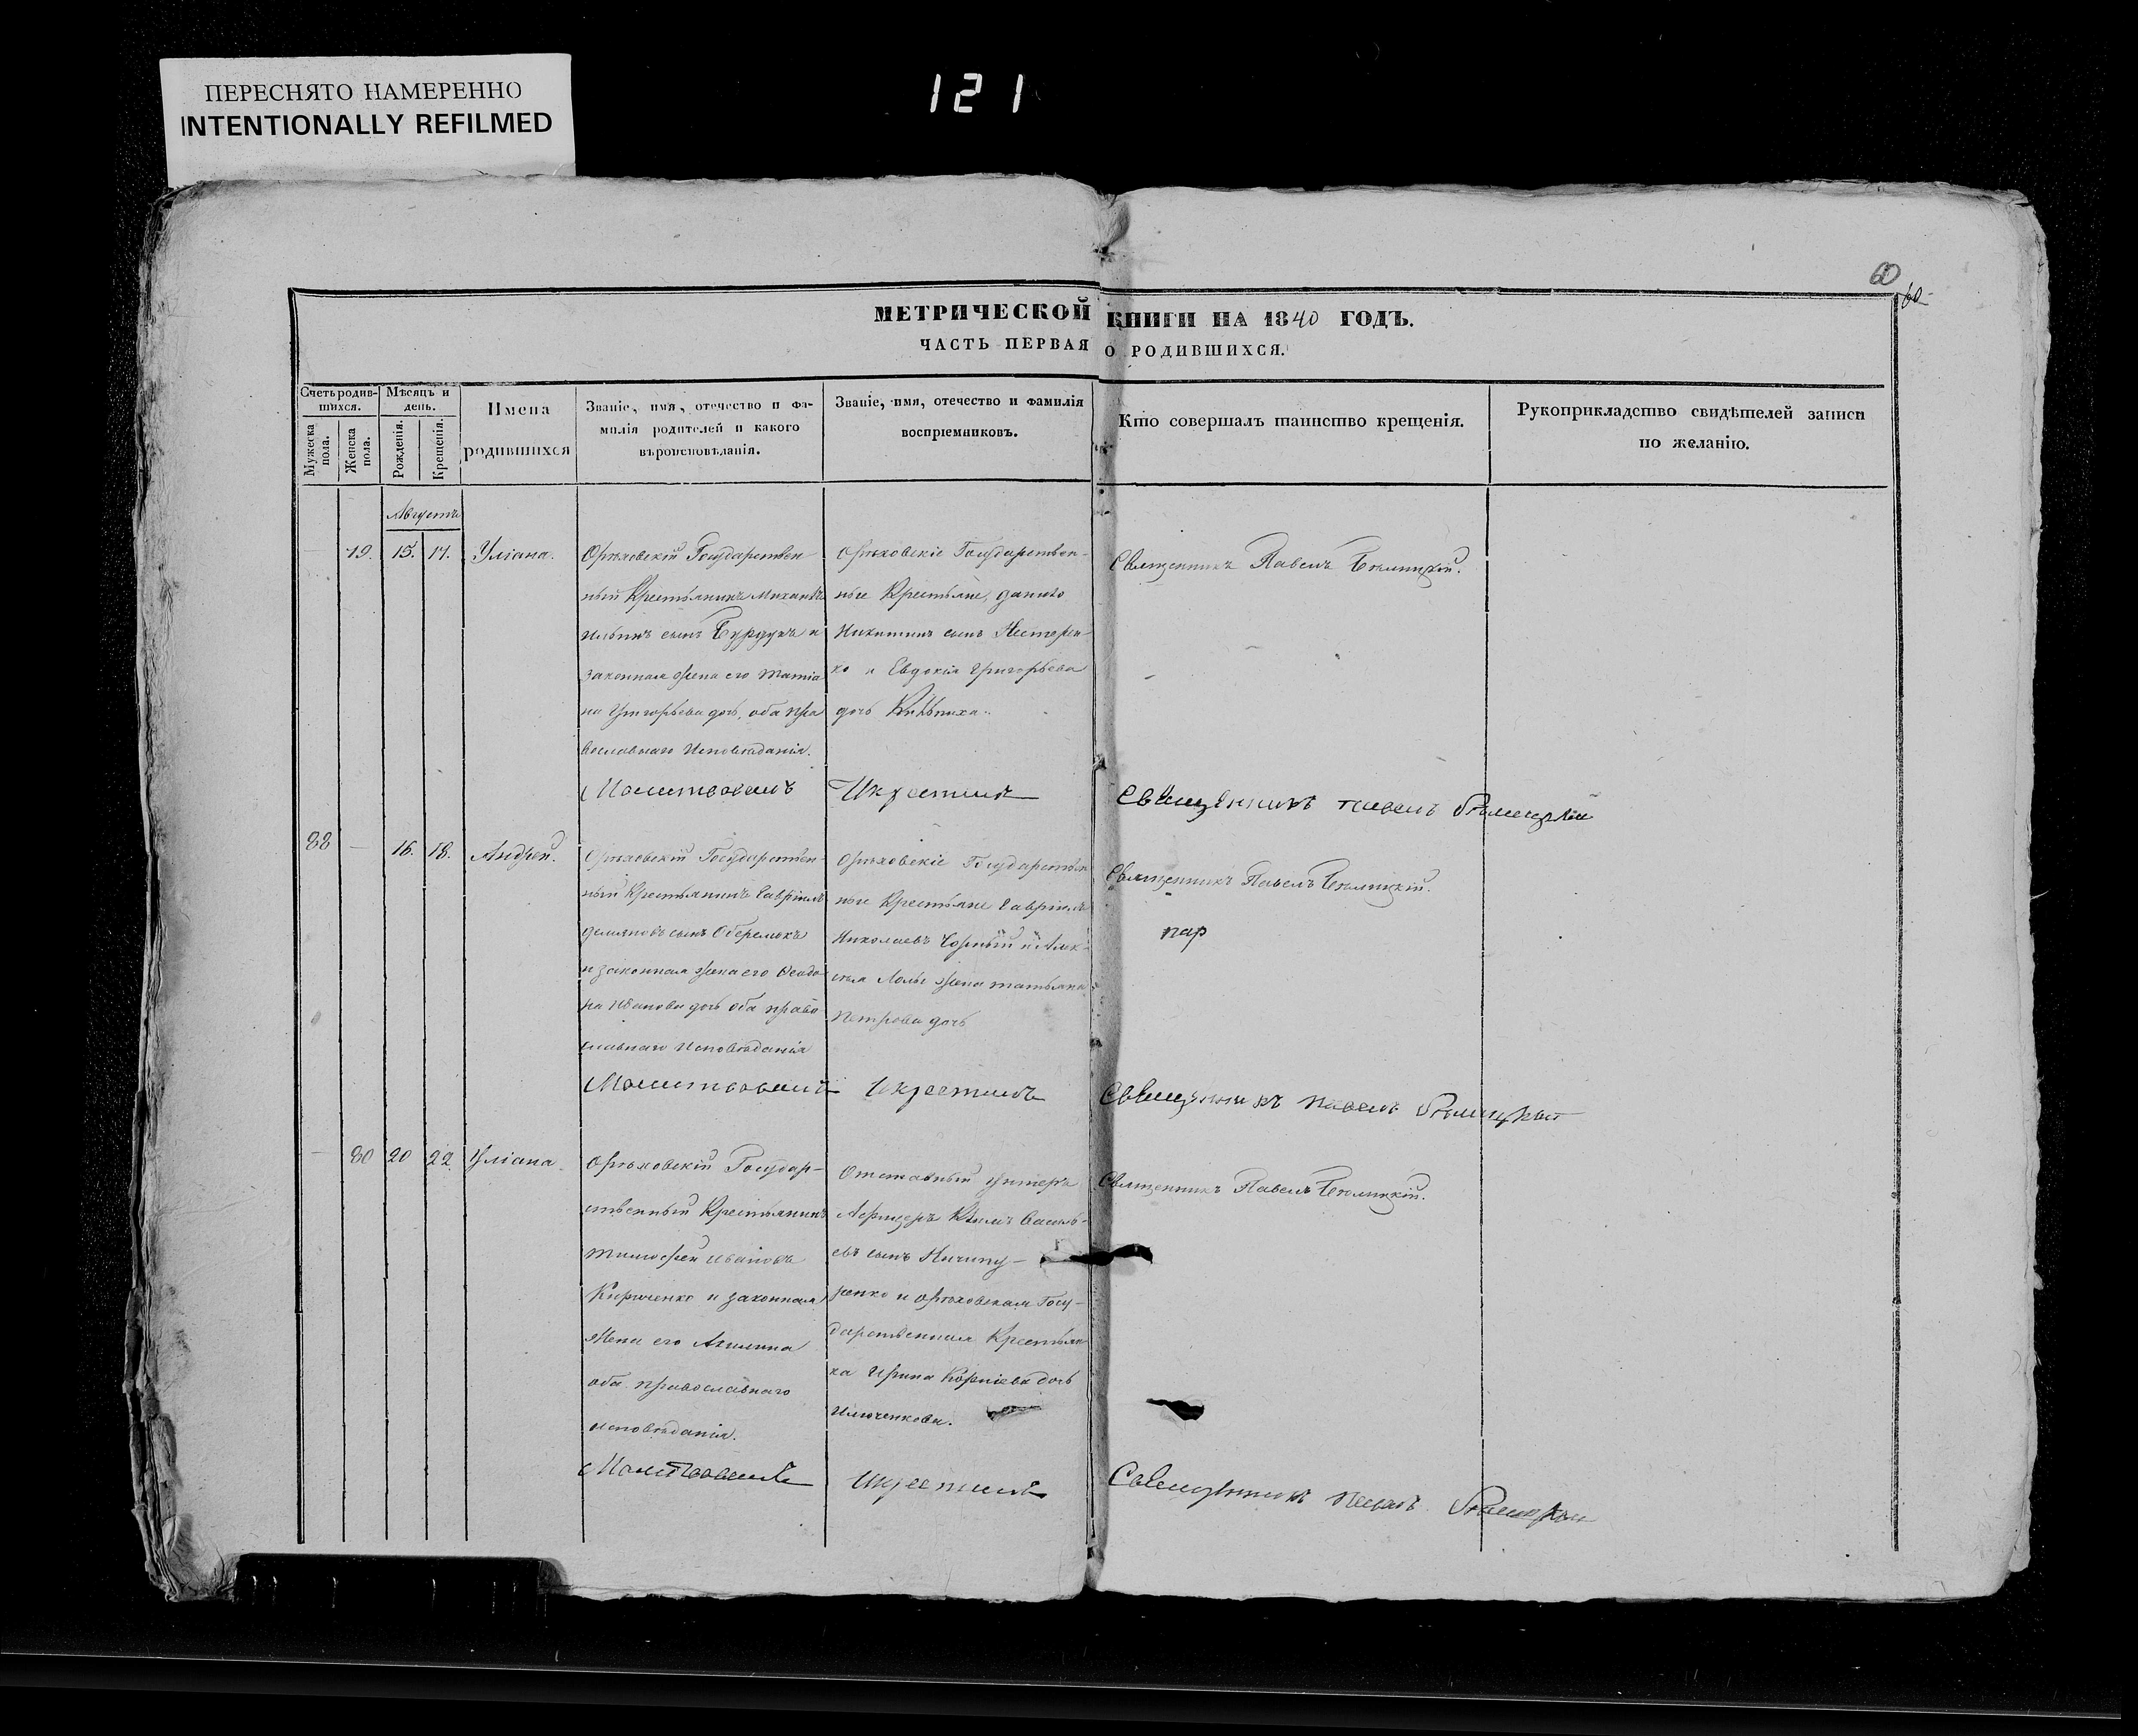 ПЕРЕСНЯТО НАМЕРЕННО
INTENTIONALLY REFILMED
121
60
60
МЕТРИЧЕСКОЙ КНИГИ НА 1840 ГОДЪ.
ЧАСТЬ ПЕРВАЯ О РОДИВШИХСЯ.
Счетъ родив-
шихся.
Мужеска пола.
Женска пола.
Мѣсяцъ и
день.
Рожденія.
Крещенія.
Имена
родившихся
Званіе, имя, отечество и фа-
милія родителей и какого
вѣроисповѣданія.
Званіе, имя, отечество и фамилія
воспріемниковъ.
Кто совершалъ таинство крещенія.
Рукоприкладство свидѣтелей записи
по желанію.
Августъ
79. 15. 17. Уліана.
Орѣховскій Государствен
ный Крестьянинъ Михаилъ
Ильинъ сынъ Бурдунъ и
законная жена его Татіа
на Григорьева дочь, оба пра
вославнаго Исповѣданія.
Молитвовалъ
Орѣховскіе Государствен-
ные Крестьяне, Данило
Никитинъ сынъ Нестерен-
ко и Евдокія Григорьева
дочь
И крестилъ
Священникъ Павелъ Бѣлицкій.
Священникъ Павелъ Бѣлицкій
88 — 16. 18. Андрей.
Орѣховскій Государствен-
ный Крестьянинъ Гавріилъ
Демяновъ сынъ Оберемокъ
и законная жена его Феодо
Иванова дочь оба право
славнаго Исповѣданія
Молитвовалъ
Орѣховскіе Государствен
ные Крестьяне Гавріилъ
Николаевъ Чорный и Алек-
жена Татьяна
Петрова дочь
И крестилъ
Священникъ Павелъ Бѣлицкій.
пар
Священникъ Павелъ Бѣлицкій
— 80 20 22 Уліана.
Орѣховскій Государ-
ственный Крестьянинъ
Тимофей Ивановъ
Кириченко и законная
Жена его Акилина
оба православнаго
исповѣданія.
Молитвовалъ
Отставный Унтеръ
Афицеръ Василь-
евъ сынъ Ничипу-
ренко и Орѣховская Госу-
дарственная Крестьян
ка Ирина Корніева дочь
Илюченкова.
И крестилъ
Священникъ Павелъ Бѣлицкій.
Священникъ Павелъ Бѣлицкій